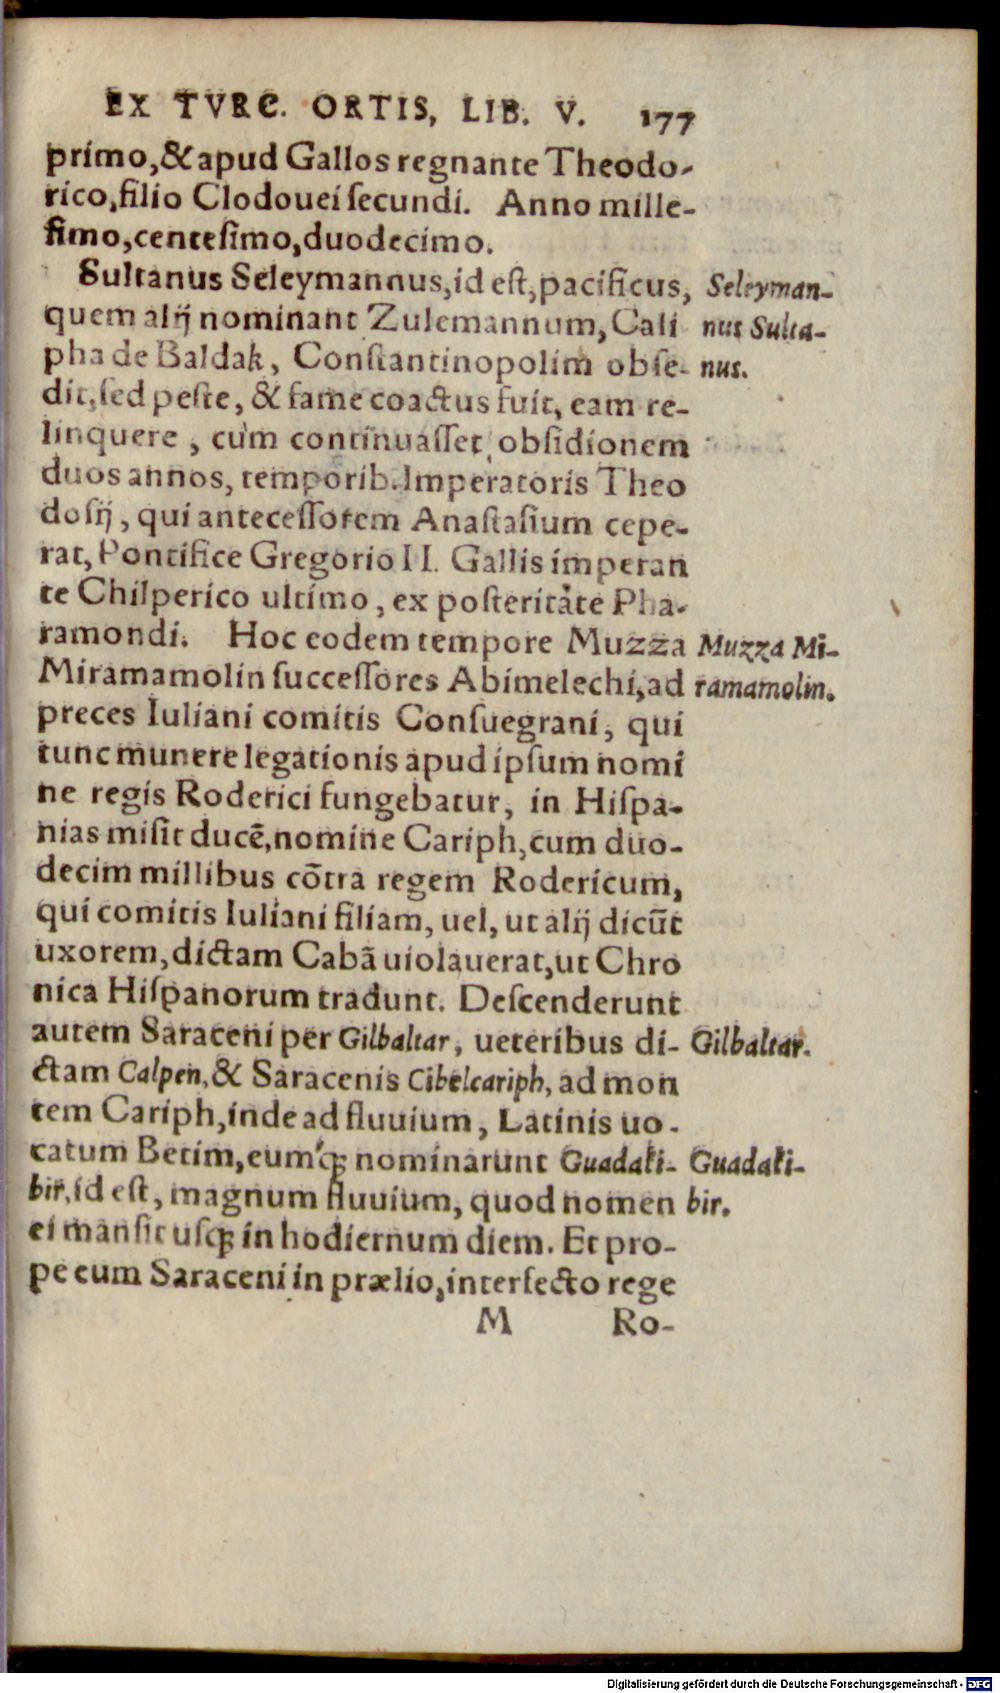 EX TVRC. ORTIS, LIB. V. 177
primo,&apud Gallos regnante Theodo-
rico,filio Clodouei ſecundi. Anno mille-
ſimo,centeſimo,duodecimo.
Sultanus Seleymannus,id eſt,pacificus,
quem alij nominant Zulemannum, Cali
pha de Baldak, Conſtantinopolim obſe-
dit,ſed peſte, & fame coactus fuit, eam re-
linquere, cùm continuaſſet obſidionem
duos annos, temporib. Imperatoris Theo
doſij, qui anteceſſorem Anaſtaſium cepe-
rat, Pontifice Gregorio II. Gallis imperan
te Chilperico ultimo, ex poſteritate Pha-
ramondi. Hoc eodem tempore Muzza
Miramamolin ſucceſſores Abimelechi,ad
preces Iuliani comitis Conſuegrani, qui
tunc munere legationis apud ipſum nomi
ne regis Roderici fungebatur, in Hiſpa-
nias miſit ducē,nomine Cariph,cum duo-
decim millibus cōtra regem Rodericum,
qui comitis Iuliani filiam, uel, ut alij dicūt
uxorem, dictam Cabā uiolauerat,ut Chro
nica Hiſpanorum tradunt. Deſcenderunt
autem Saraceni per Gilbaltar, ueteribus di-
ctam Calpen,& Saracenis Cibelcariph, ad mon
tem Cariph,inde ad fluuium, Latinis uo-
catum Betim,eumq́; nominarunt Guadalki-
bir,id eſt, magnum fluuium, quod nomen
ei manſit uſq; in hodiernum diem. Et pro-
pe eum Saraceni in prælio,interfecto rege
M Ro-
Seleyman-
nus Sulta-
nus.
Muzza Mi-
ramamolin.
Gilbaltar.
Guadalki-
bir.
Digitalisierung gefördert durch die Deutsche Forschungsgemeinschaft - DFG